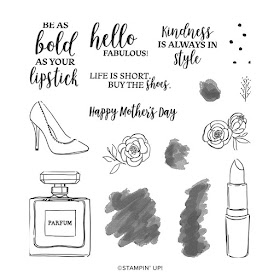 BE AS
bold
AS YOUR
lipstick
hello
FABULOUS!
Kindness
IS ALWAYS IN
style
LIFE IS SHORT.
BUY THE shoes.
Happy Mother's Day
PARFUM
©STAMPIN' UP!